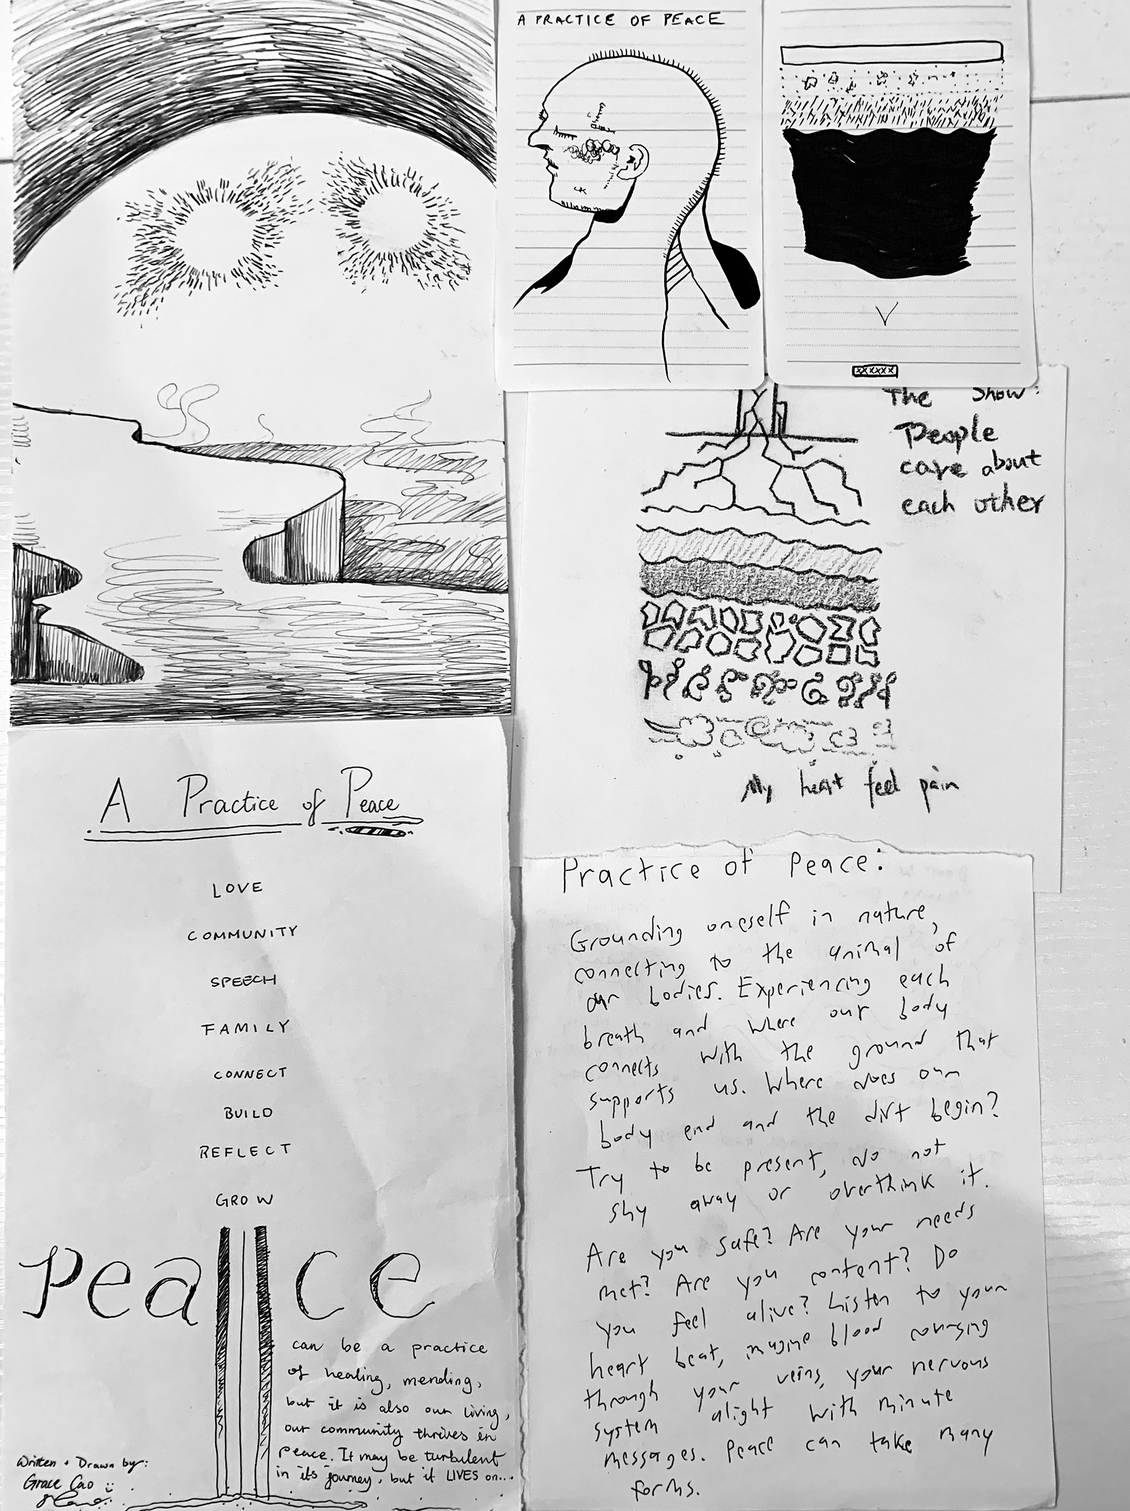 A PRACTICE OF PEACE
The Show:
People
care about
each other
My heart feel pain
A Practice of Peace
LOVE
COMMUNITY
SPEECH
FAMILY
CONNECT
BUILD
REFLECT
GROW
Peace
can be a practice
of healing, mending,
but it is also our living,
our community thrives in
peace. It may be turbulent
in its journey, but it LIVES on...
Written + Drawn by:
Grace Cao :)
Practice of Peace:
Grounding oneself in nature,
connecting to the animal of
our bodies. Experiencing each
breath and where our body
connects with the ground that
supports us. Where does our
body end and the dirt begin?
Try to be present, do not
shy away or overthink it.
Are you safe? Are your needs
met? Are you content? Do
you feel alive? Listen to your
heart beat, imagine blood coursing
through your veins, your nervous
system alight with minute
messages. Peace can take many
forms.